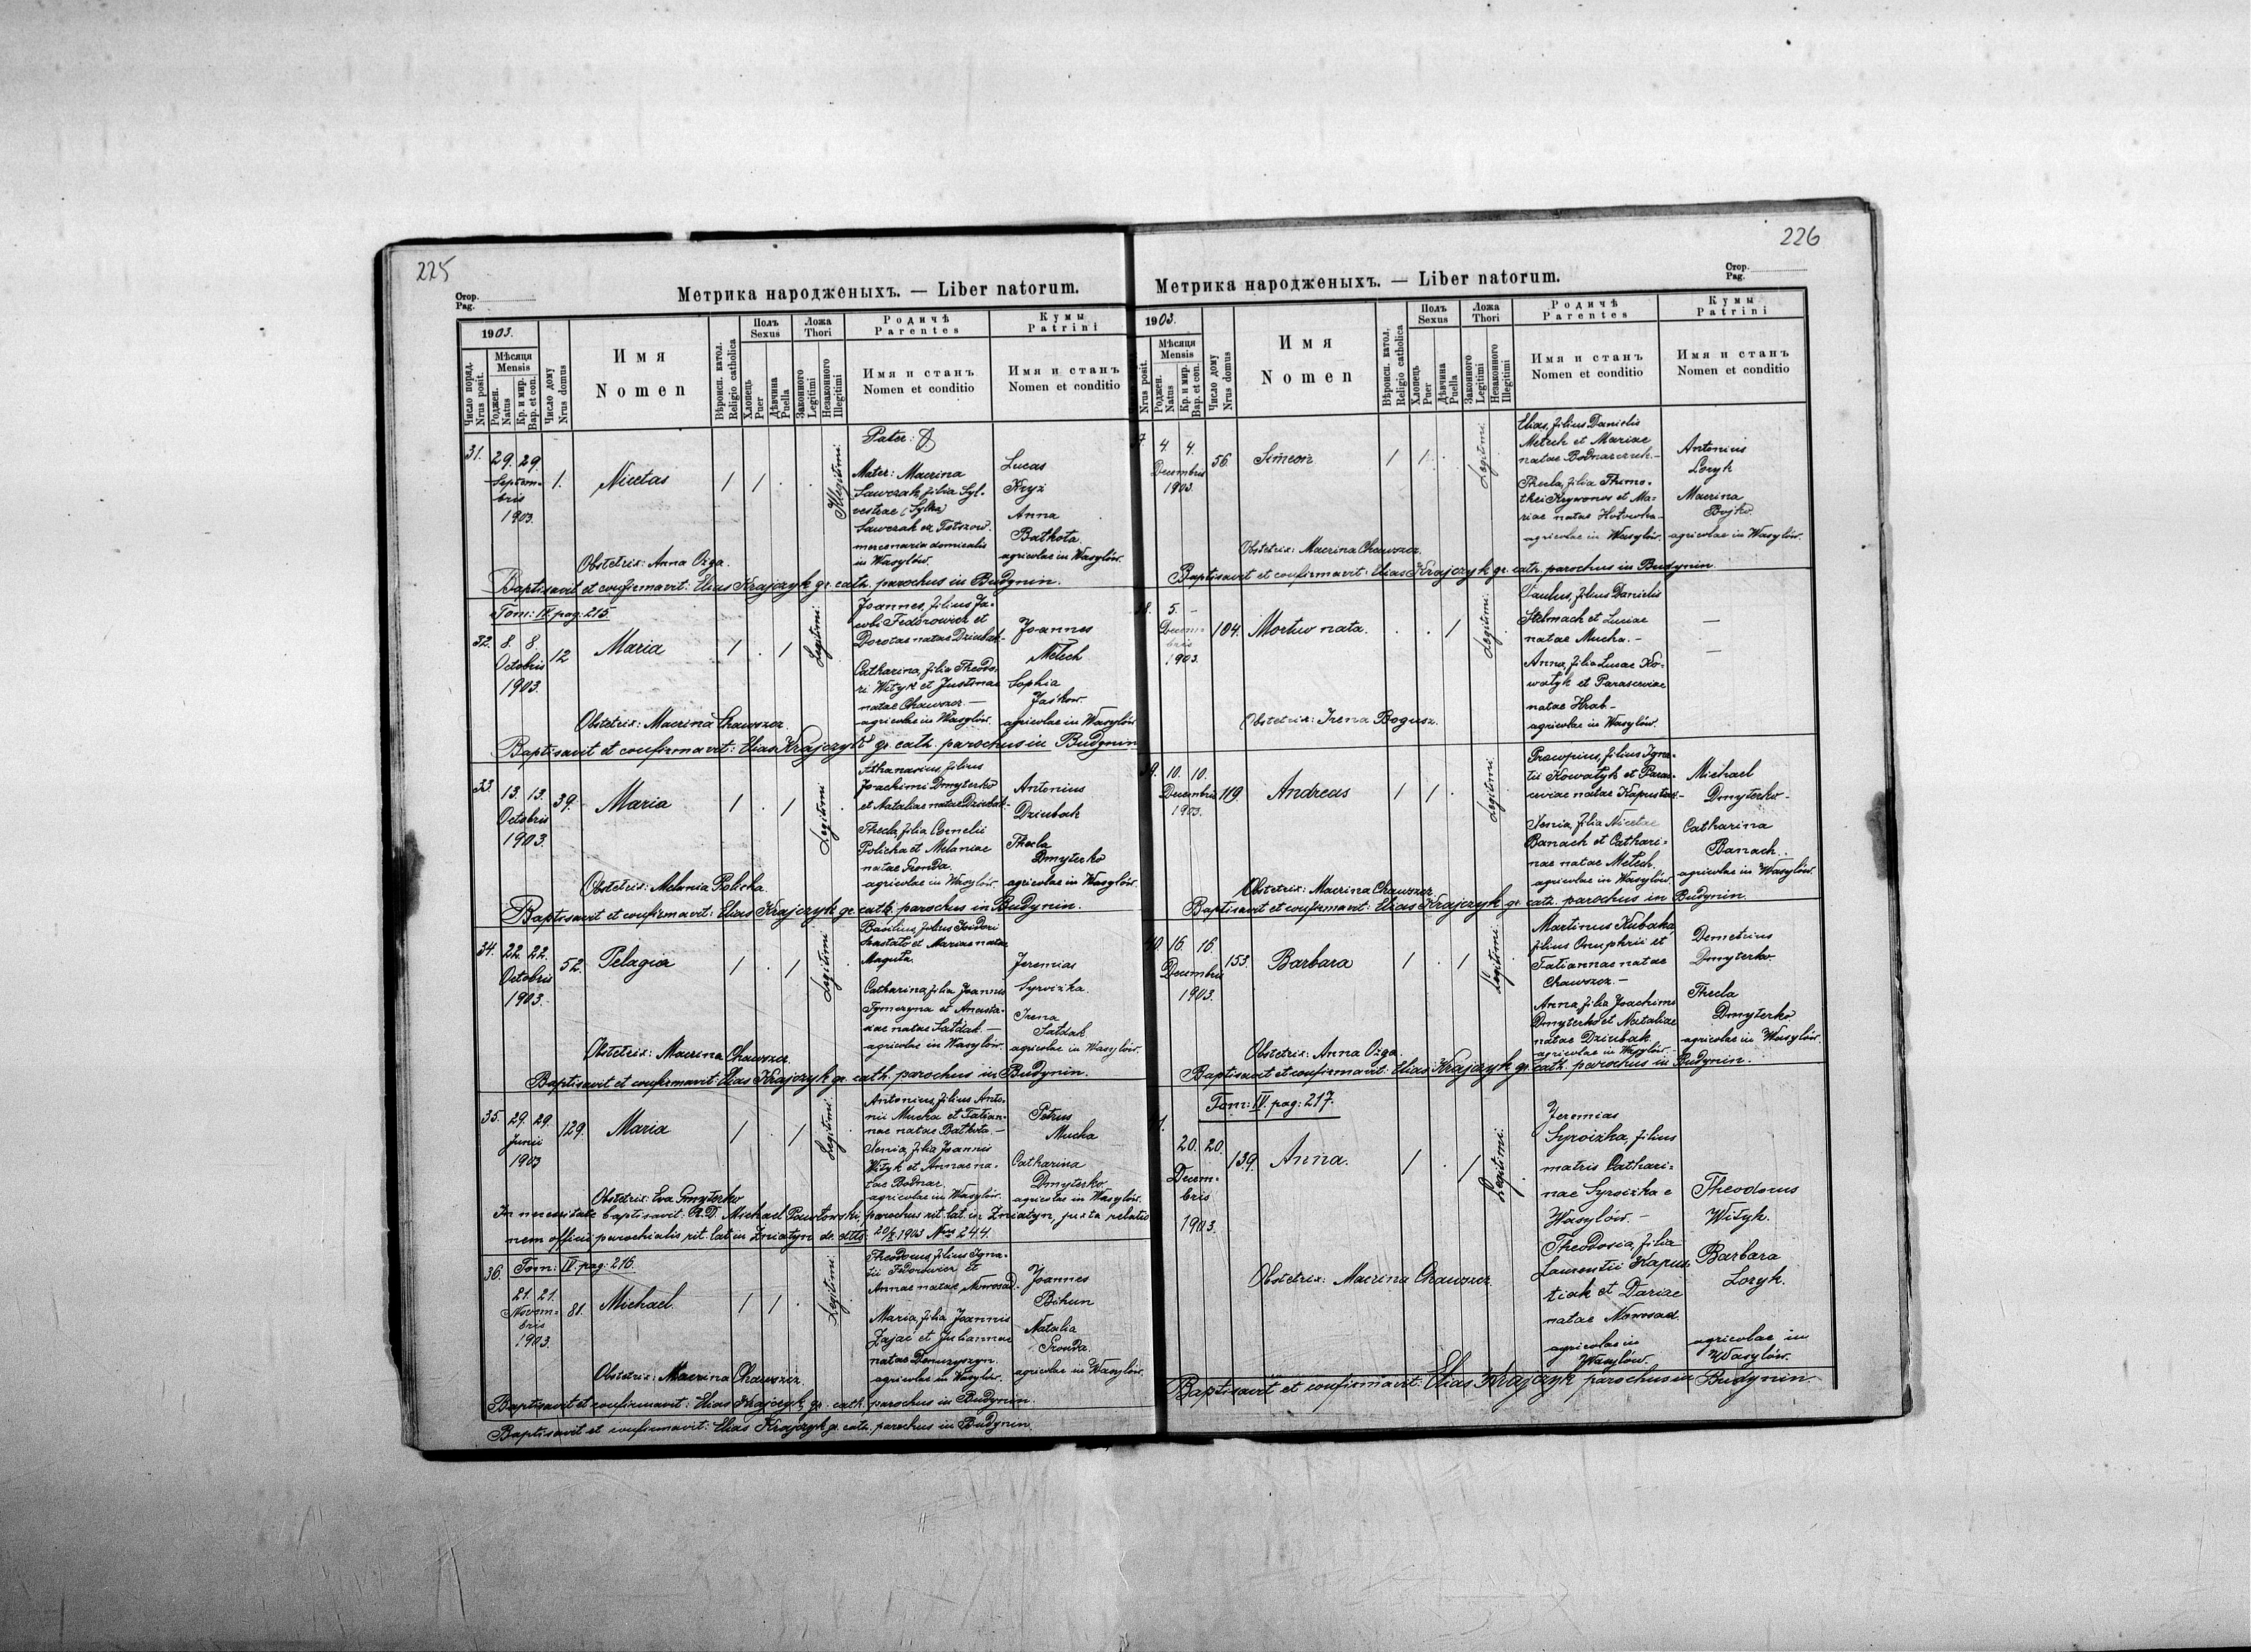 225
Стор.
Pag.
Метрика народженыхъ. — Liber natorum.
1903.
Число поряд.
Nrus posit.
Мѣсяця
Mensis
Роджен.
Natus
Кр. и мир.
Bap. et con.
Число дому
Nrus domus
Имя
Nomen
Вѣроисп. катол.
Religio catholica
Полъ
Sexus
Хлопець
Puer
Дѣвчина
Puella
Ложа
Thori
Законного
Legitimi
Незаконного
Illegitimi
Родичѣ
Parentes
Имя и станъ
Nomen et conditio
Кумы
Patrini
Имя и станъ
Nomen et conditio
31.
29. 29.
Septem-
bris
1903.
1.
Nicetas
Illegitimi.
Pater:
Mater: Macrina
Sawczak filia Syl-
vestrae (Sylka)
Sawczak ex
mercenaria domicalis
in Wasylów.
Lucas
Kryz
Anna
Bathota.
agricolae in Wasylów.
Obstetrix: Anna Ożga.
Baptisavit et confirmavit: Elias Krajczyk gr. cath. parochus in Budynin.
Tom: IV. pag: 215.
32.
8. 8.
Octobris
1903.
12
Maria
Legitimi.
Joannes, filius Ja-
cobi Fedorowicz et
Dorotae natae Dziubak-
Catharina, filia Theodo-
ri Wityk et Justinae
natae Chawszcz. —
agricolae in Wasylów.
Joannes
Melech
Sophia
Jaśkow.
agricolae in Wasylów
Obstetrix: Macrina Chawszcz.
Baptisavit et confirmavit: Elias Krajczyk gr. cath. parochus in Budynin
33
13. 13.
Octobris
1903.
39.
Maria
Legitimi
Athanasius, filius
Joachimi Dmyterko
et Nataliae natae Dziubak-
Thecla, filia Cornelii
Policha et Melaniae
natae Gronda.
agricolae in Wasylów.
Antonius
Dziubak
Thecla
Dmyterko
agricolae in Wasylów.
Obstetrix: Melania Policha.
Baptisavit et confirmavit: Elias Krajczyk gr. cath. parochus in Budynin.
34.
22. 22.
Octobris
1903.
52.
Pelagia
Legitimi
Basilius, filius Isidori
et Mariae natae
Maguta.
Catharina, filia Joannis
Tymczyna et Anasta-
siae natae Sałdak. —
agricolae in Wasylów.
Jeremias
Syroizka.
Irena
Sałdak
agricolae in Wasylów.
Obstetrix: Macrina Chawszcz.
Baptisavit et confirmavit: Elias Krajczyk gr. cath. parochus in Budynin.
35.
29. 29.
Junii
1903
129.
Maria
Legitimi.
Antonius, filius Anto-
nii Mucha et Tatian-
nae natae Bathota. —
Xenia, filia Joannis
Wityk et Annae na-
tae Bodnar.
agricolae in Wasylów.
Petrus
Mucha
Catharina
Dmyterko.
agricolae in Wasylów.
Obstetrix: Eva Dmyterko
In necessitate baptisavit: R. D. Michael Pawłowski, parochus rit. lat. in Żniatyn, juxta relatio
nem officii parochialis rit. lat. in Żniatyn de dtto 20/X 1903 Nro 244.
36.
Tom: IV. pag: 216.
21. 21.
Novem-
bris
1903.
81.
Michael.
Legitimi.
Theodorus, filius Igna-
tii Fedorowicz et
Annae natae Nowosad.
Maria, filia Joannis
Zajac et Juliannae
natae
agricolae in Wasylów.
Joannes
Bihun
Natalia
Gronda
agricolae in Wasylów.
Obstetrix: Macrina Chawszcz.
Baptisavit et confirmavit: Elias Krajczyk, gr. cath. parochus in Budynin.
Baptisavit et confirmavit: Elias Krajczyk gr. cath. parochus in Budynin.
226
Стор.
Pag.
Метрика народженыхъ. — Liber natorum.
1903.
Nrus posit.
Мѣсяця
Mensis
Роджен.
Natus
Кр. и мир.
Bap. et con.
Число дому
Nrus domus
Имя
Nomen
Вѣроисп. катол.
Religio catholica
Полъ
Sexus
Хлопець
Puer
Дѣвчина
Puella
Ложа
Thori
Законного
Legitimi
Незаконного
Illegitimi
Родичѣ
Parentes
Имя и станъ
Nomen et conditio
Кумы
Patrini
Имя и станъ
Nomen et conditio
7.
4. 4.
Decembris
1903.
56.
Simeon
Legitimi.
Elias, filius Danielis
Melech et Mariae
natae Bodnarczuk. —
Thecla, filia Thimo-
thei Krywonos et Ma-
riae natae Hołowka —
agricolae in Wasylów.
Antonius
Lozyk
Macrina
Bojko.
agricolae in Wasylów.
Obstetrix: Macrina Chawszcz.
Baptisavit et confirmavit: Elias Krajczyk gr. cath. parochus in Budynin.
8.
5. —
Decem-
bris
1903.
104.
Mortuo nata.
Legitimi.
Paulus, filius Danielis
Stelmach et Luciae
natae Mucha. —
Anna, filia Lucae Ko-
walyk et Parasceviae
natae Hrab —
agricolae in Wasylów.
—
—
Obstetrix: Irena Bogusz.
9.
10. 10.
Decembris
1903.
119.
Andreas
Legitimi.
Procopius, filius Igna-
tii Kowalyk et Paras-
ceviae natae Kapustiak —
Xenia, filia Nicetae
Banach et Cathari-
nae natae Melech.
agricolae in Wasylów.
Michael
Dmyterko —
Catharina
Banach.
agricolae in Wasylów.
Obstetrix: Macrina Chawszcz
Baptisavit et confirmavit: Elias Krajczyk gr. cath. parochus in Budynin.
40.
16. 16.
Decembris
1903.
153.
Barbara
Legitimi.
Martinus Kubaka,
filius Onuphrii et
Tatiannae natae
Chawszcz. —
Anna, filia Joachimi
Dmyterko et Nataliae
natae Dziubak.
agricolae in Wasylów.
Demetrius
Dmyterko.
Thecla
Dmyterko
agricolae in Wasylów.
Obstetrix: Anna Ożga.
Baptisavit et confirmavit: Elias Krajczyk gr. cath. parochus in Budynin.
Tom: IV. pag: 217.
1.
20. 20.
Decem-
bris
1903.
139.
Anna.
Legitimi.
Jeremias
Syroizka, filius
matris Cathari-
nae Syroizka e
Wasylów. —
Theodosia, filia
Laurentii Kapus-
tiak et Dariae
natae Nowosad.
agricolae in
Wasylów.
Theodorus
Wityk.
Barbara
Lozyk.
agricolae in
Wasylów.
Obstetrix: Macrina Chawszcz.
Baptisavit et confirmavit: Elias Krajczyk parochus in Budynin.